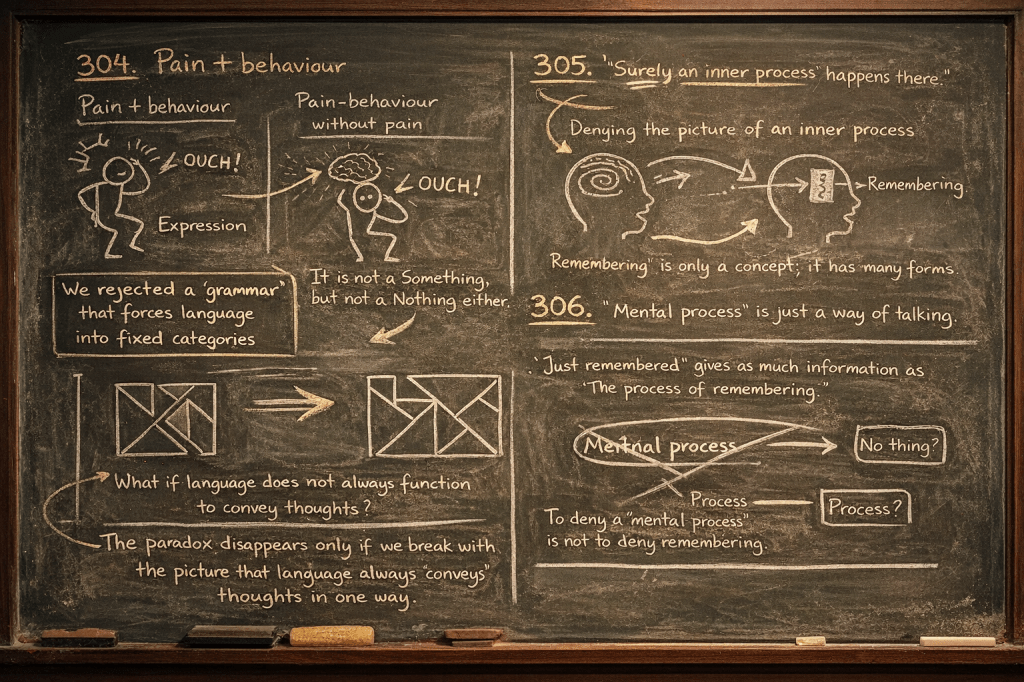 304. Pain + behaviour
Pain + behaviour
OUCH!
Expression
Pain-behaviour
without pain
OUCH!
We rejected a 'grammar"
that forces language
into fixed categories
It is not a Something,
but not a Nothing either.
What if language does not always function
to convey thoughts?
The paradox disappears only if we break with
the picture that language always "conveys"
thoughts in one way.
305. '"Surely an inner process' happens there."
Denying the picture of an inner process
Remembering
Remembering" is only a concept; it has many forms.
306. "Mental process" is just a way of talking.
"Just remembered" gives as much information as
'The process of remembering."
process
No thing?
Process
Process?
To deny a "mental process"
is not to deny remembering.